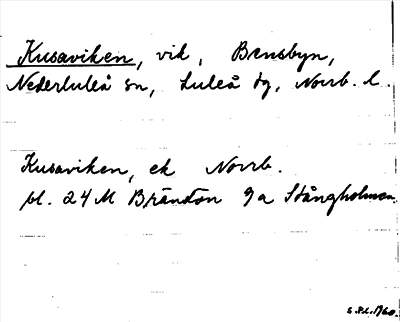 Kusaviken, vik, Bensbyn,
Nederluleå sn, Luleå tg, Norrb. l.
Kusaviken, ek Norrb.
bl. 24 M Brändön 9a Stångholmen
S.P.L. 1960.